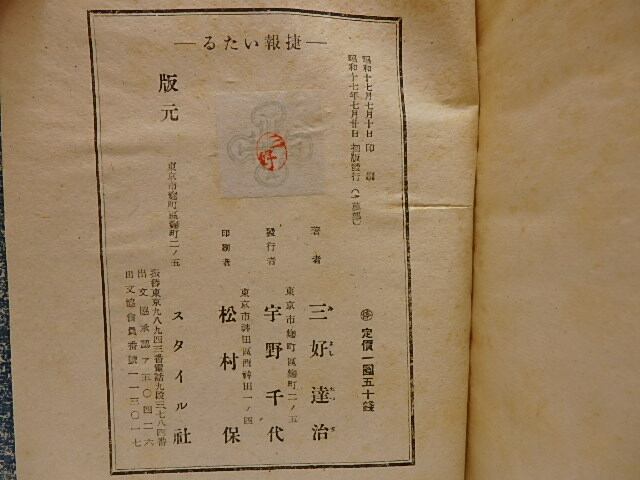 ―捷報いたる―
昭和十七年七月十日 印刷
昭和十七年七月廿日 初版發行
三好
㊕定價一圓五十錢
著者 三好達治
みよしたつぢ
東京市麹町區麹町二ノ五
發行者 宇野千代
東京市神田區西神田一ノ四
印刷者 松村保
版元 東京市麹町區麹町二ノ五 スタイル社
振替東京九八九四三番電話九段三七八四番
出文協承認ア五〇四二六
出文協會員番號一一三〇一七